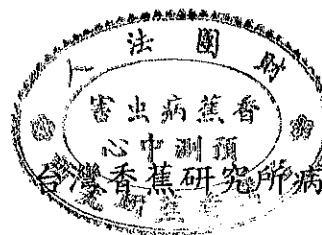 財團法人
香蕉病虫害
預測中心
台灣香蕉研究所病